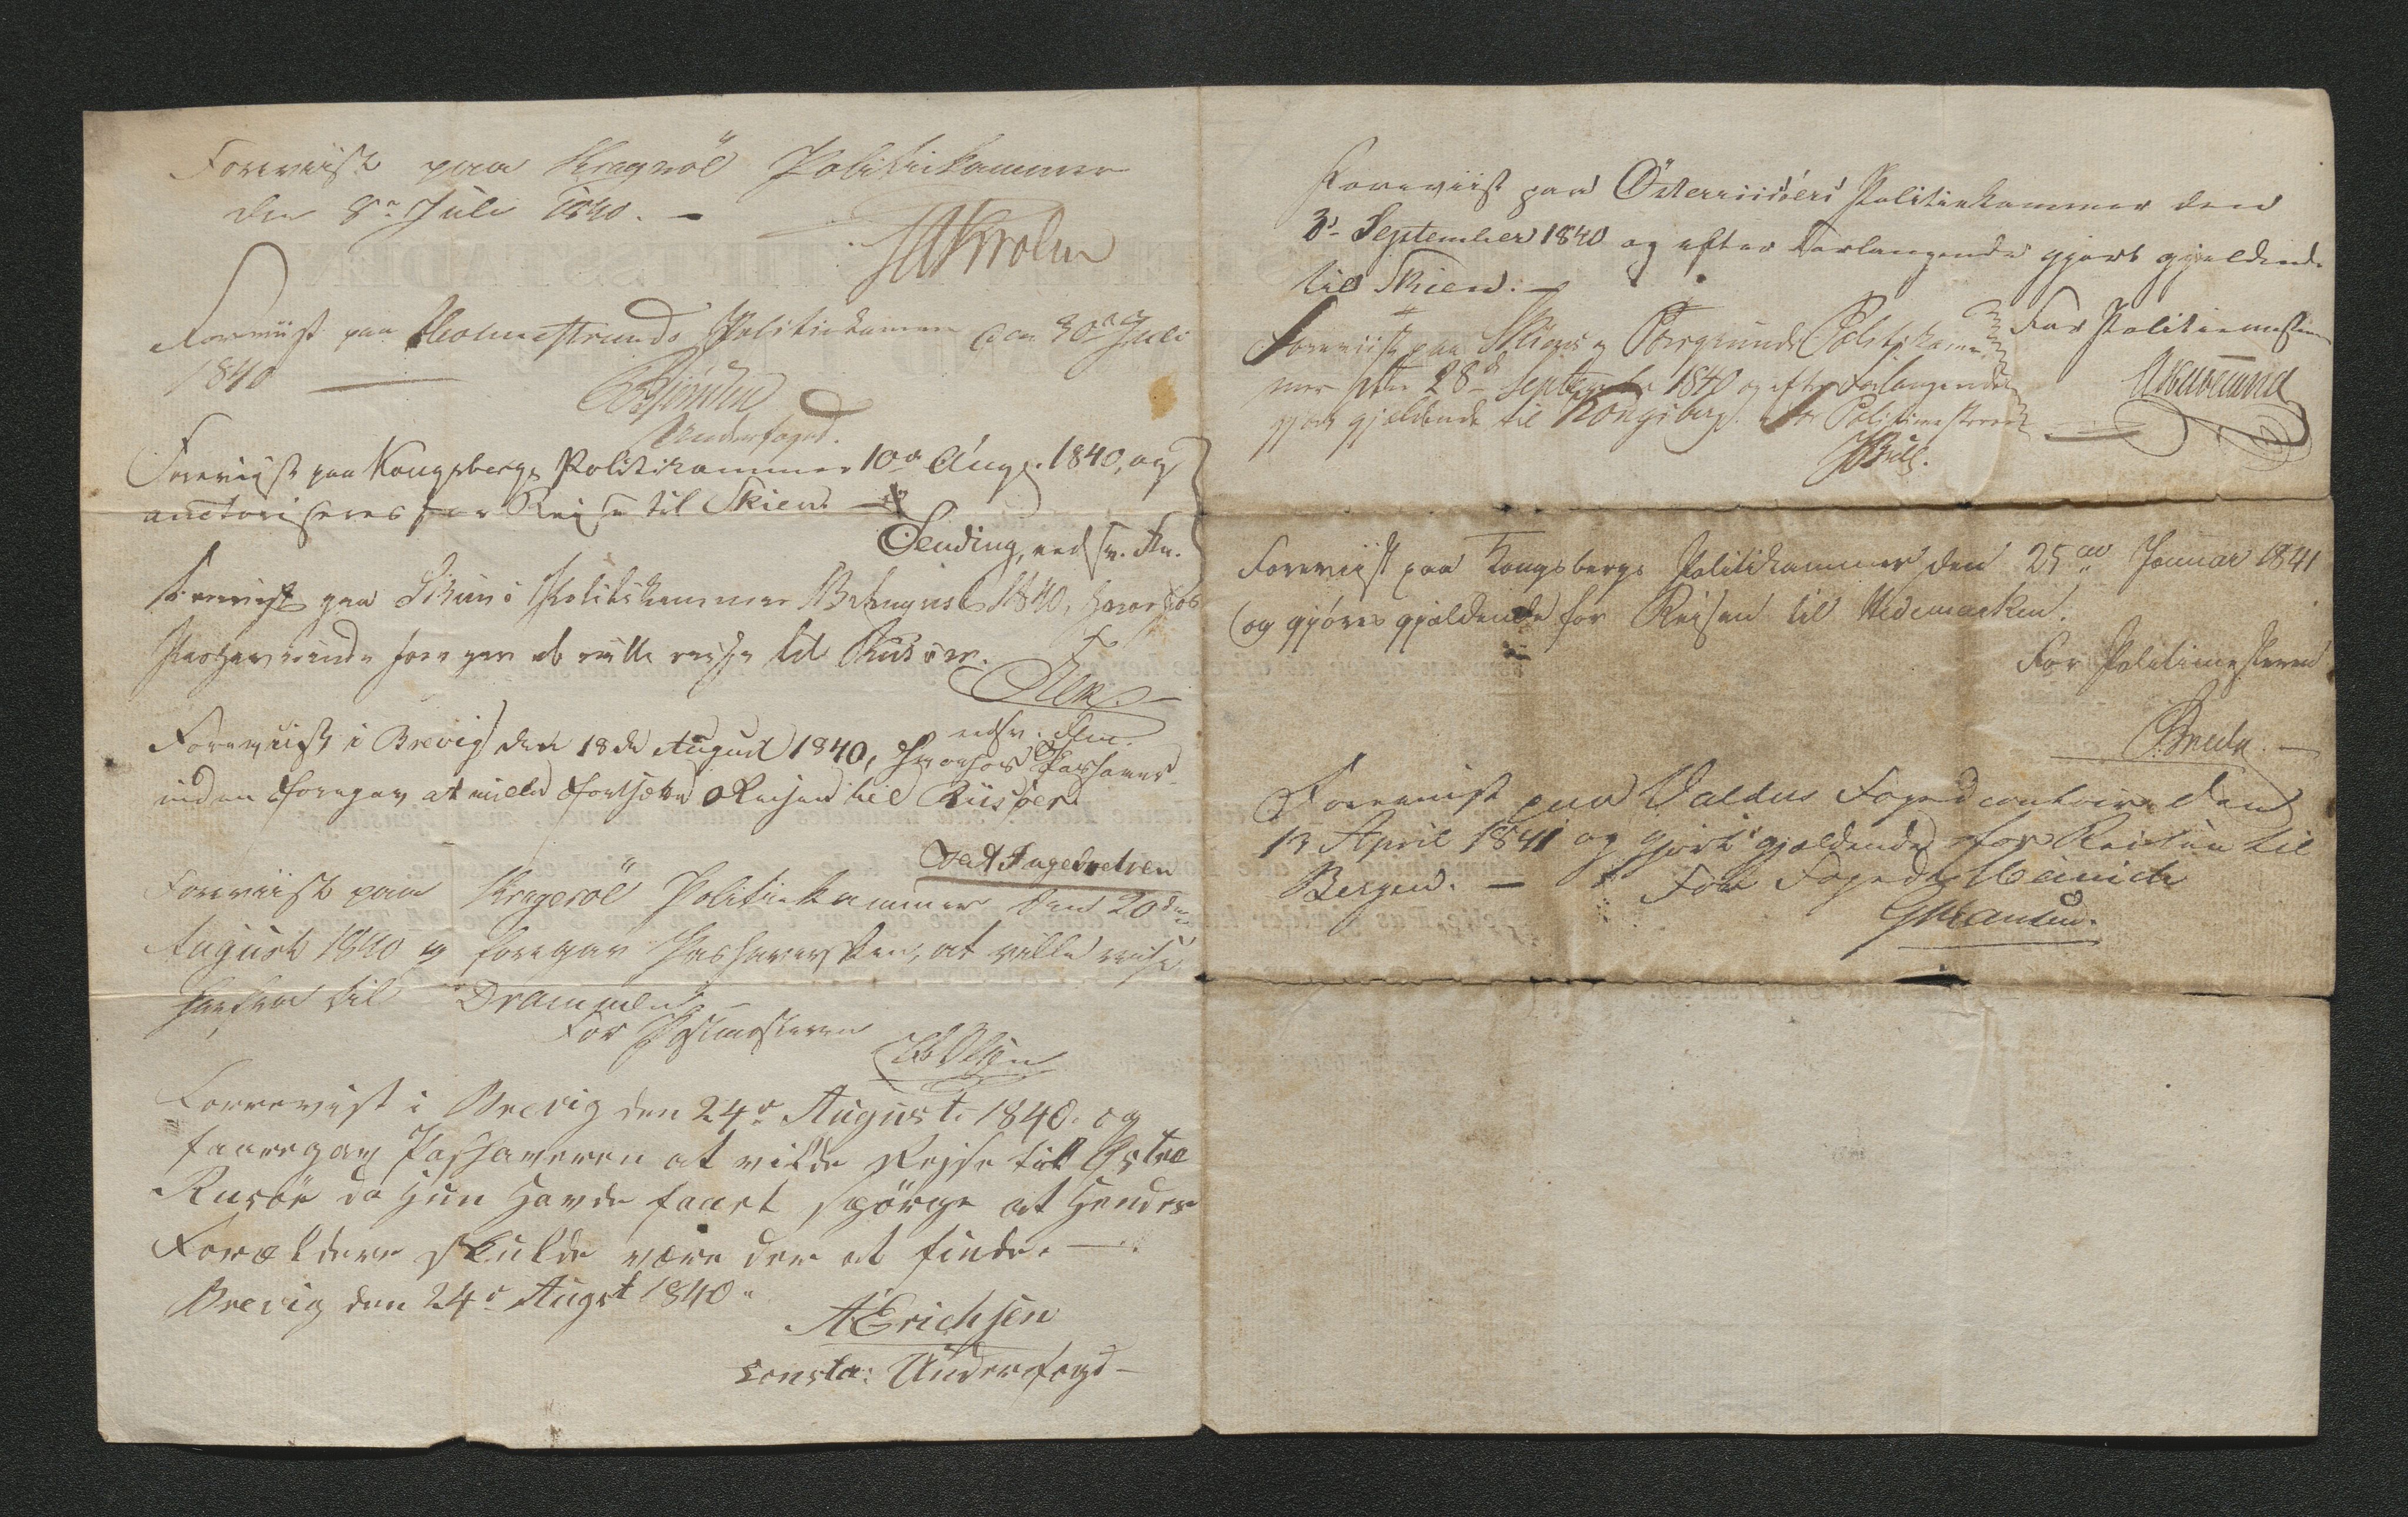 Foreviist paa Kragerøe Politiekammer
den 8de Juli 1840. –
Foreviist paa Holmestrands Politiekammer den 30te Juli
1840
Underfoged.
Foreviist paa Kongsbergs Politikammer 10de Aug. 1840, og
auctoriseres for Reise til Skien. –
Sending,
Foreviist paa Skiens Politikammer 13 August 1840, hvorhos
Pashaverinde foregav at ville reise til Riisøer.
Foreviist i Brevig den 18de August 1840, hvorhos Pashaver-
inden foregav at ville fortsætte Reisen til Riisøer
Foreviist paa Kragerøe Politiekammer den 20de
August 1840 og foregav Pashaversken, at ville reise
herfra til Drammen. –
For Politimesteren
Forevist i Brevig den 24de August 1840. og
foregav Pashaveren at vilde Rejse till Østre
Rusøer da Hun Havde faaet spørge at Hendes
Forældere skulde være der at finde. –
Brevig den 24de Augst 1840.
A Erichsen
consta: Underfogd –
Foreviist paa Østerriisøers Politiekammer den
3die September 1840 og efter Forlangende gjort gjeldende
til Skien. –
For Politiemesteren
Foreviist paa Skiens og Porsgrunds Politikam-
mer den 28de September 1840 og efter Forlangende
gjort gjældende til Kongsberg. For Politimesteren
Foreviist paa Kongsbergs Politikammer den 25de Januar 1841
og gjøres gjældende for Reisen til Hedemarken.
For Politimesteren
Foreviist paa Valders Fogedcontoir den
13 April 1841 og gjort gjældende for Reisen til
Bergen. – For Foged Meinich